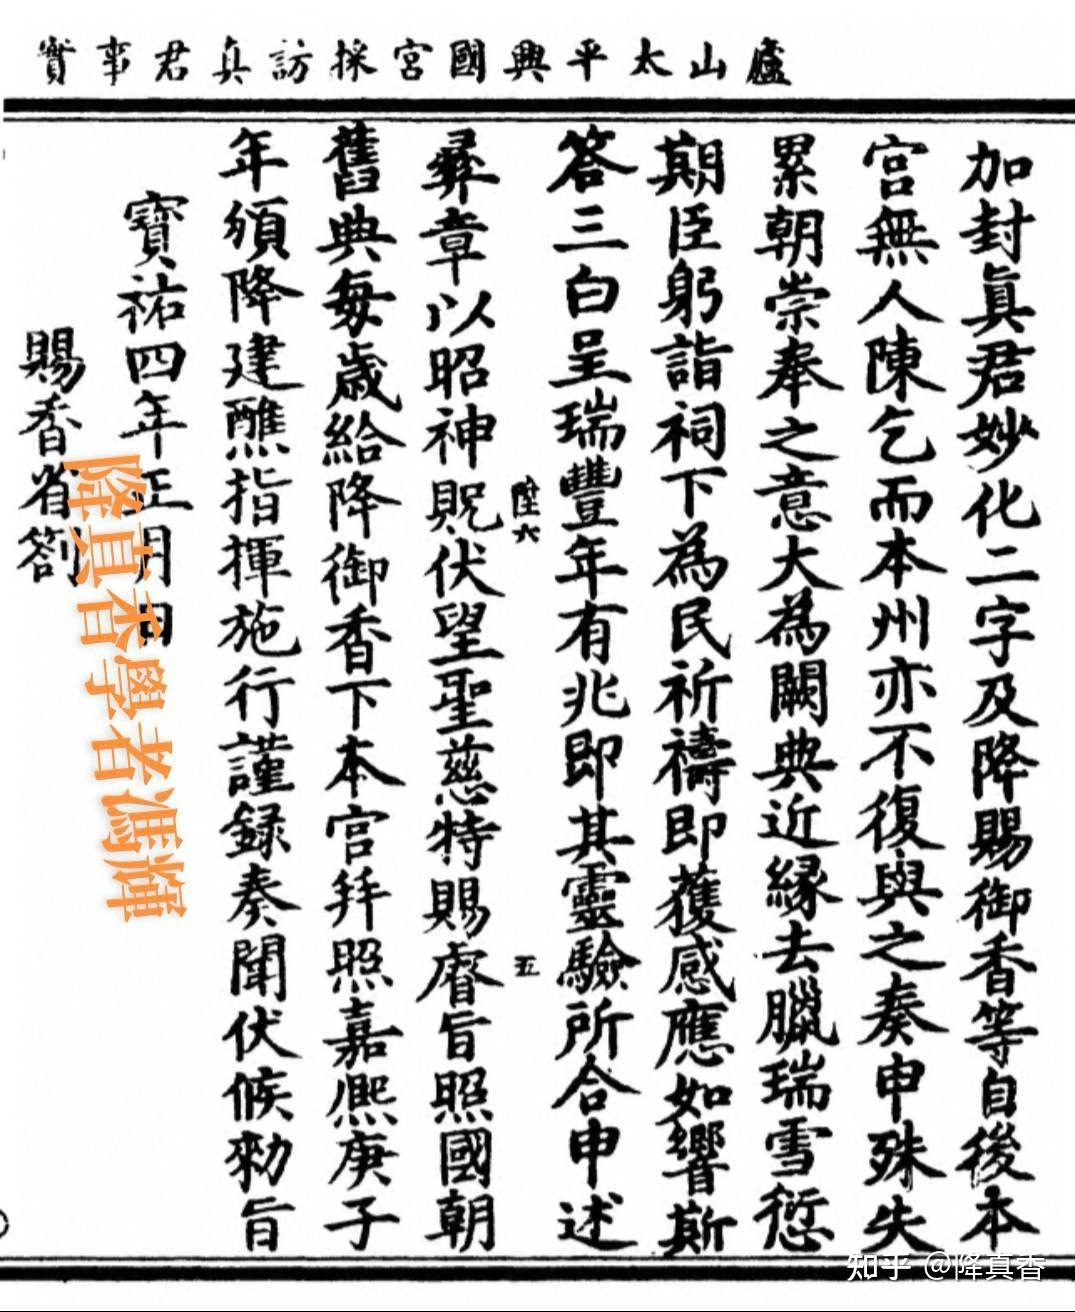 廬山太平興國宮採訪真君事實
加封真君妙化二字及降賜御香等自後本
宮無人陳乞而本州亦不復與之奏申殊失
累朝崇奉之意大為闕典近緣去臘瑞雪愆
期臣躬詣祠下為民祈禱即獲感應如響斯
答三白呈瑞豐年有兆即其靈驗所合申述
陸六
五
彝章以昭神貺伏望聖慈特賜睿旨照國朝
舊典每歲給降御香下本宮拜照嘉熙庚子
年頒降建醮指揮施行謹録奏聞伏候勑旨
寶祐四年正月日
賜香省劄
降真香學者馮輝
知乎 @降真香